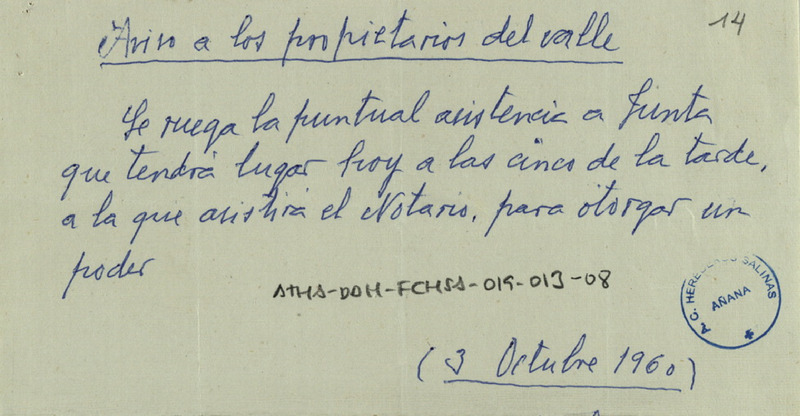 14
Aviso a los propietarios del valle
Se ruega la puntual asistencia a Junta
que tendrá lugar hoy a las cinco de la tarde,
a la que asistirá el Notario, para otorgar un
poder
ATHA-DAH-FCHSA-019-013-08
A.C. HEREDEROS SALINAS
AÑANA
(3 Octubre 1960)